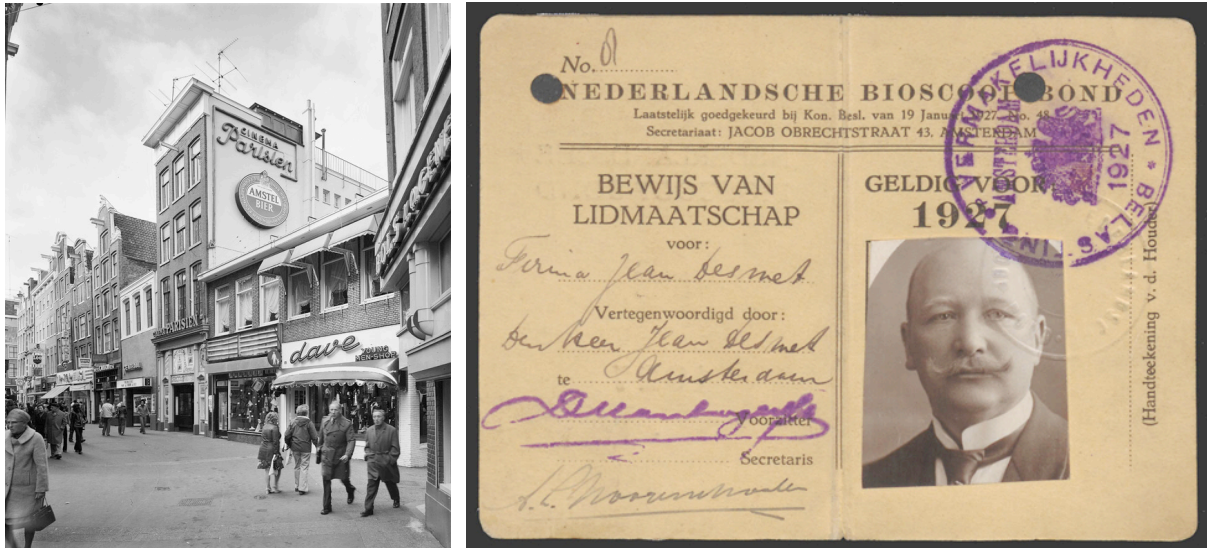 CINEMA
Parisien
AMSTEL
BIER
PARISIEN
dave
YOUNG
MEN-SHOP
No. 8
NEDERLANDSCHE BIOSCOOP-BOND
Laatstelijk goedgekeurd bij Kon. Besl. van 19 Januari 1927, No. 48
Secretariaat: JACOB OBRECHTSTRAAT 43. AMSTERDAM
BEWIJS VAN
LIDMAATSCHAP
voor:
Firma Jean Desmet
Vertegenwoordigd door:
Den Heer Jean Desmet
te Amsterdam
Voorzitter
Secretaris
GELDIG VOOR
1927
VERMAKELIJKHEDEN * BELAS
AMSTERDAM
1927
(Handteekening v. d. Houder)